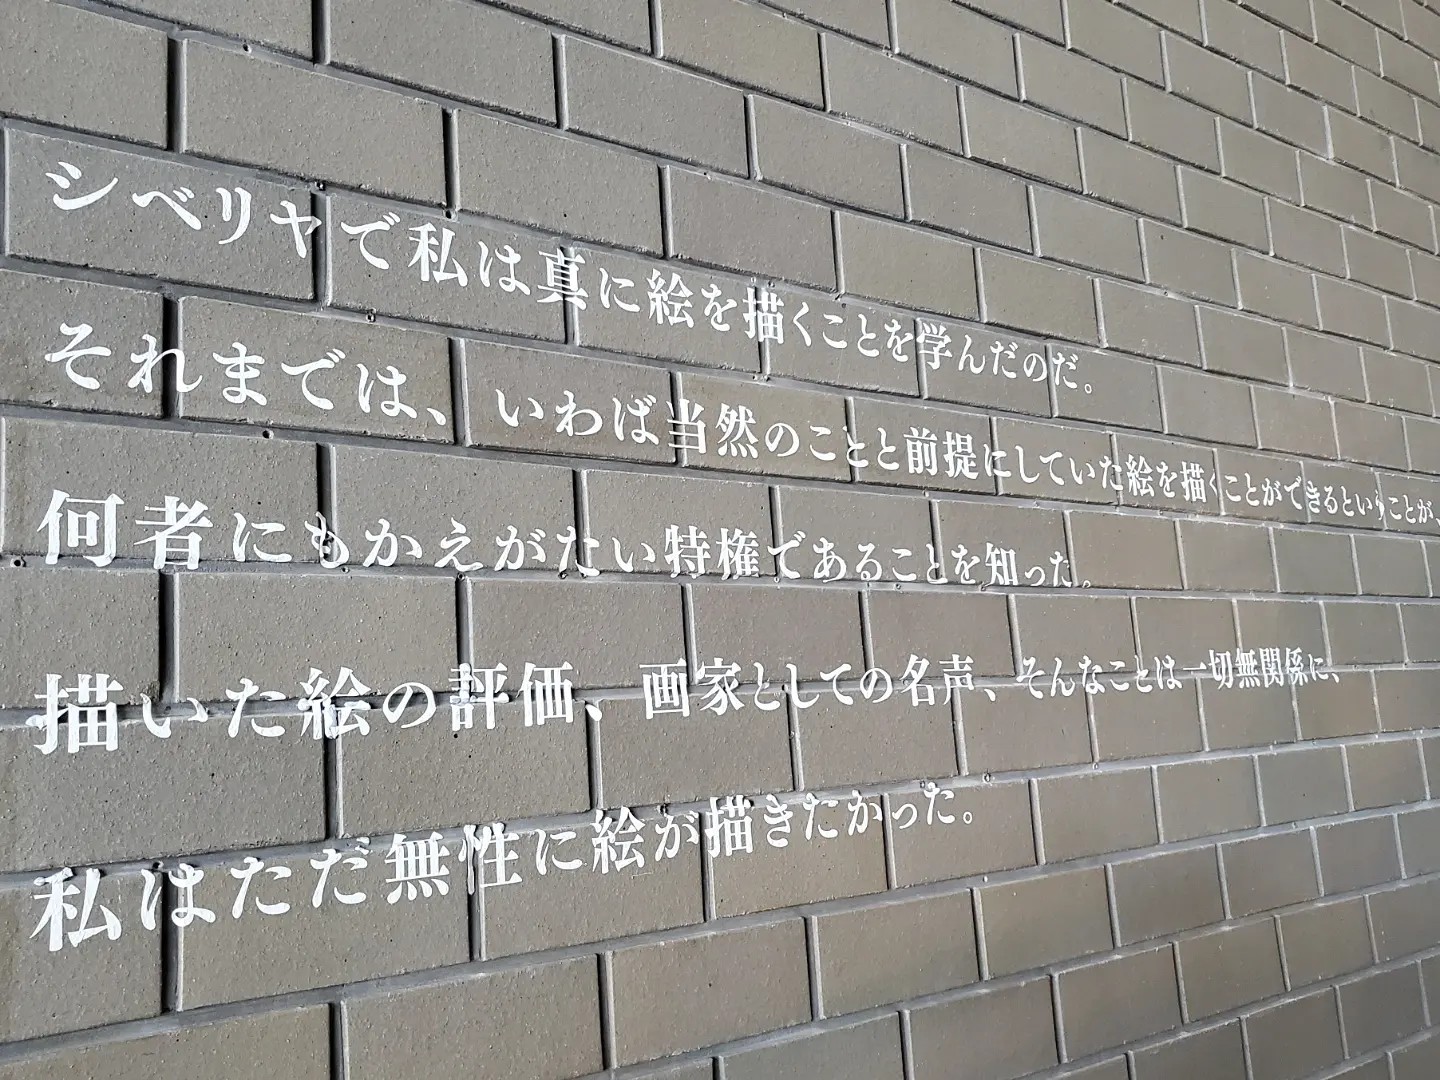 シベリヤで私は真に絵を描くことを学んだのだ。
それまでは、いわば当然のことと前提にしていた絵を描くことができるということが、
何者にもかえがたい特権であることを知った。
描いた絵の評価、画家としての名声、そんなことは一切無関係に、
私はただ無性に絵が描きたかった。